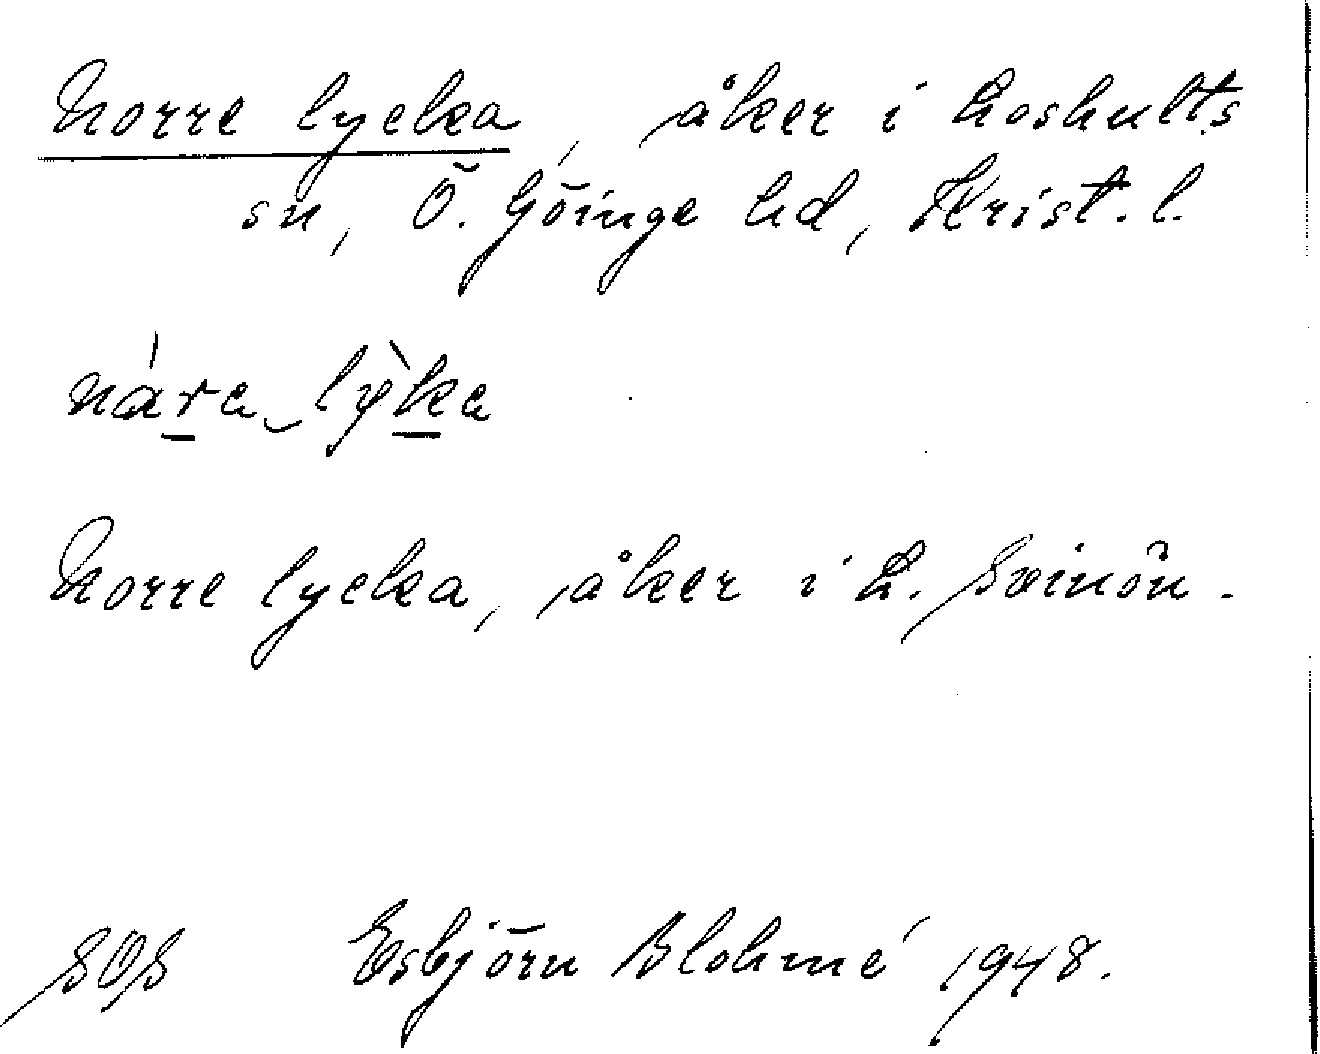 Norre lycka, åker i Loshults
sn, Ö. Göinge hd, Krist. l.
nára lỳka
Norre lycka, åker i L. Svinön.
SOS Esbjörn Blohmé 1948.